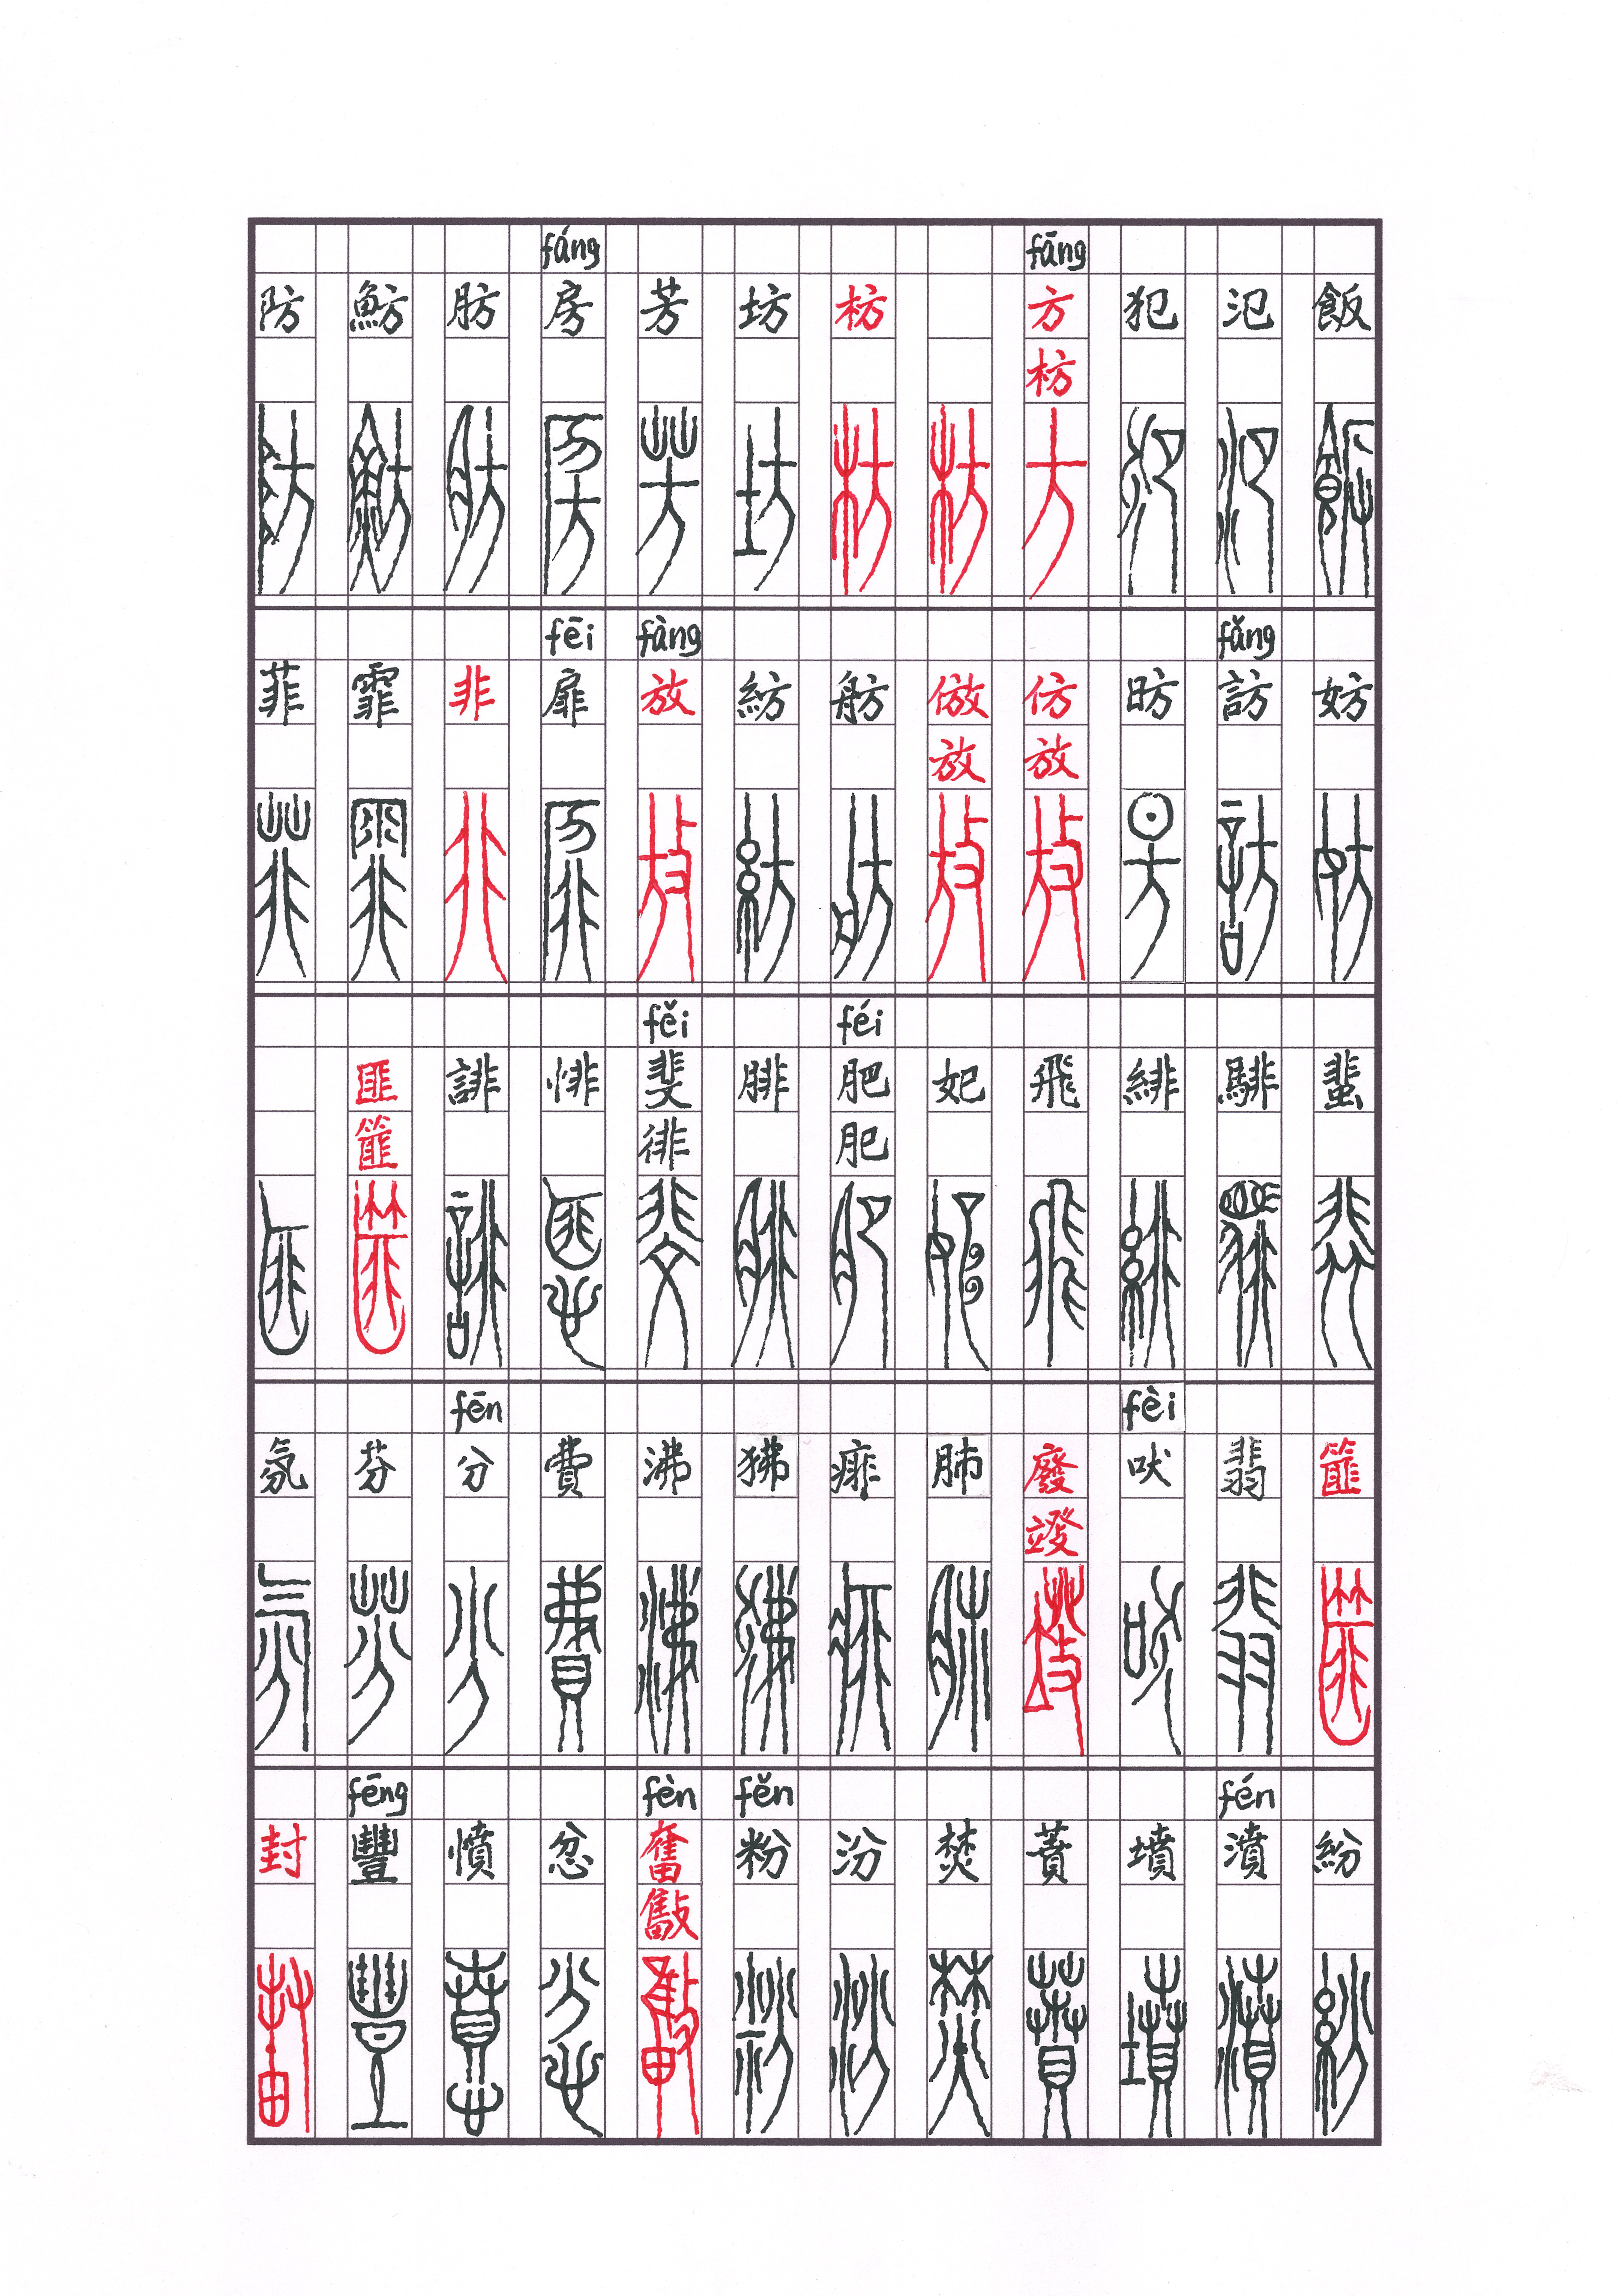 fāng fáng
飯 氾 犯 方 枋 坊 芳 房 肪 魴 防
枋
fǎng fàng fēi
妨 訪 昉 仿 倣 舫 紡 放 扉 非 霏 菲
放 放
féi fěi
蜚 騑 緋 飛 妃 肥 腓 斐 悱 誹 匪
肥 徘 篚
fèi fēn
篚 翡 吠 廢 肺 痱 狒 沸 費 分 芬 氛
fén fěn fèn fēng
紛 濆 墳 蕡 焚 汾 粉 奮 忿 憤 豐 封